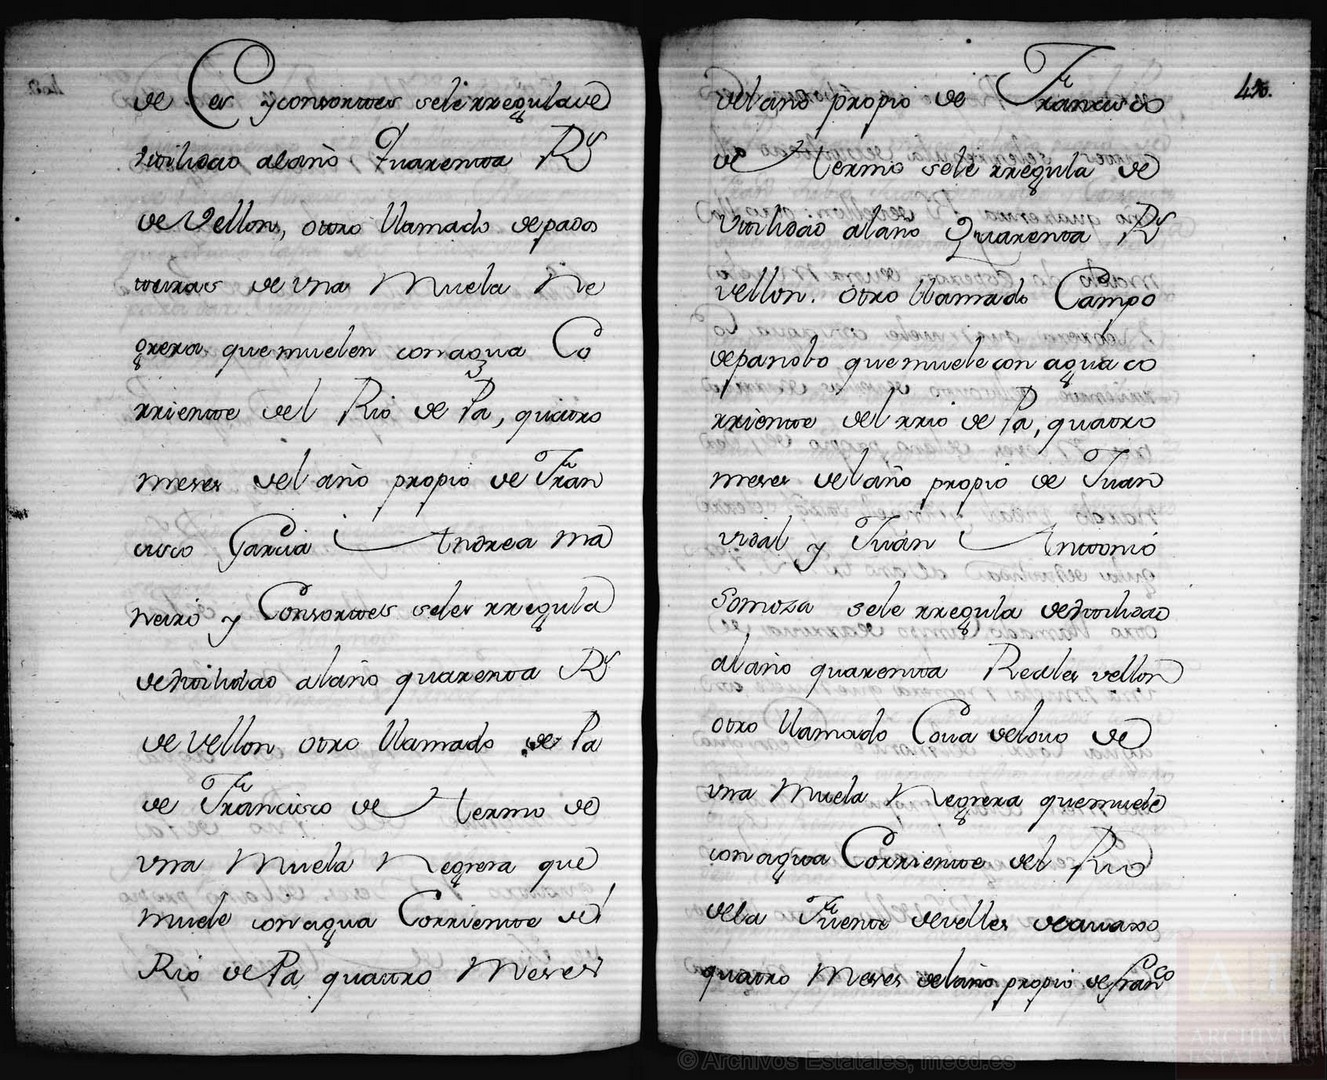 de Cer y consortes sele rregula de
utilidad al año Quarenta Rs
de Vellon, otro llamado depados
tturas de una Muela Ne
grera que muelen con agua Co
rriente del Rio de Pa, quatro
meses del año propio de Fran
cisco Garcia Andrea ma
neiro y Consortes seles rregula
de utilidad al año quarenta Rs
de Vellon otro llamado de Pa
de Francisco de Hermo de
una Muela Negrera que
muele con agua Corriente del
Rio de Pa quatro Meses
del año propio de Francisco
de Hermo sele rregula de
Utilidad al año Quarenta Rs
vellon. otro llamado Campo
de panobo que muele con agua co
rriente del rrio de Pa, quatro
meses del año propio de Juan
vidal y Juan Antonio
Somoza sele rregula de utilidad
al año quarenta Reales vellon
otro llamado Coua delouo de
una Muela Negrera que muele
con agua Corriente del Rio
dela Fuente develles deauaxo
quatro Meses del año propio de franco
430.
© Archivos Estatales, mecd.es
ARCHIVOS
ESTATALES